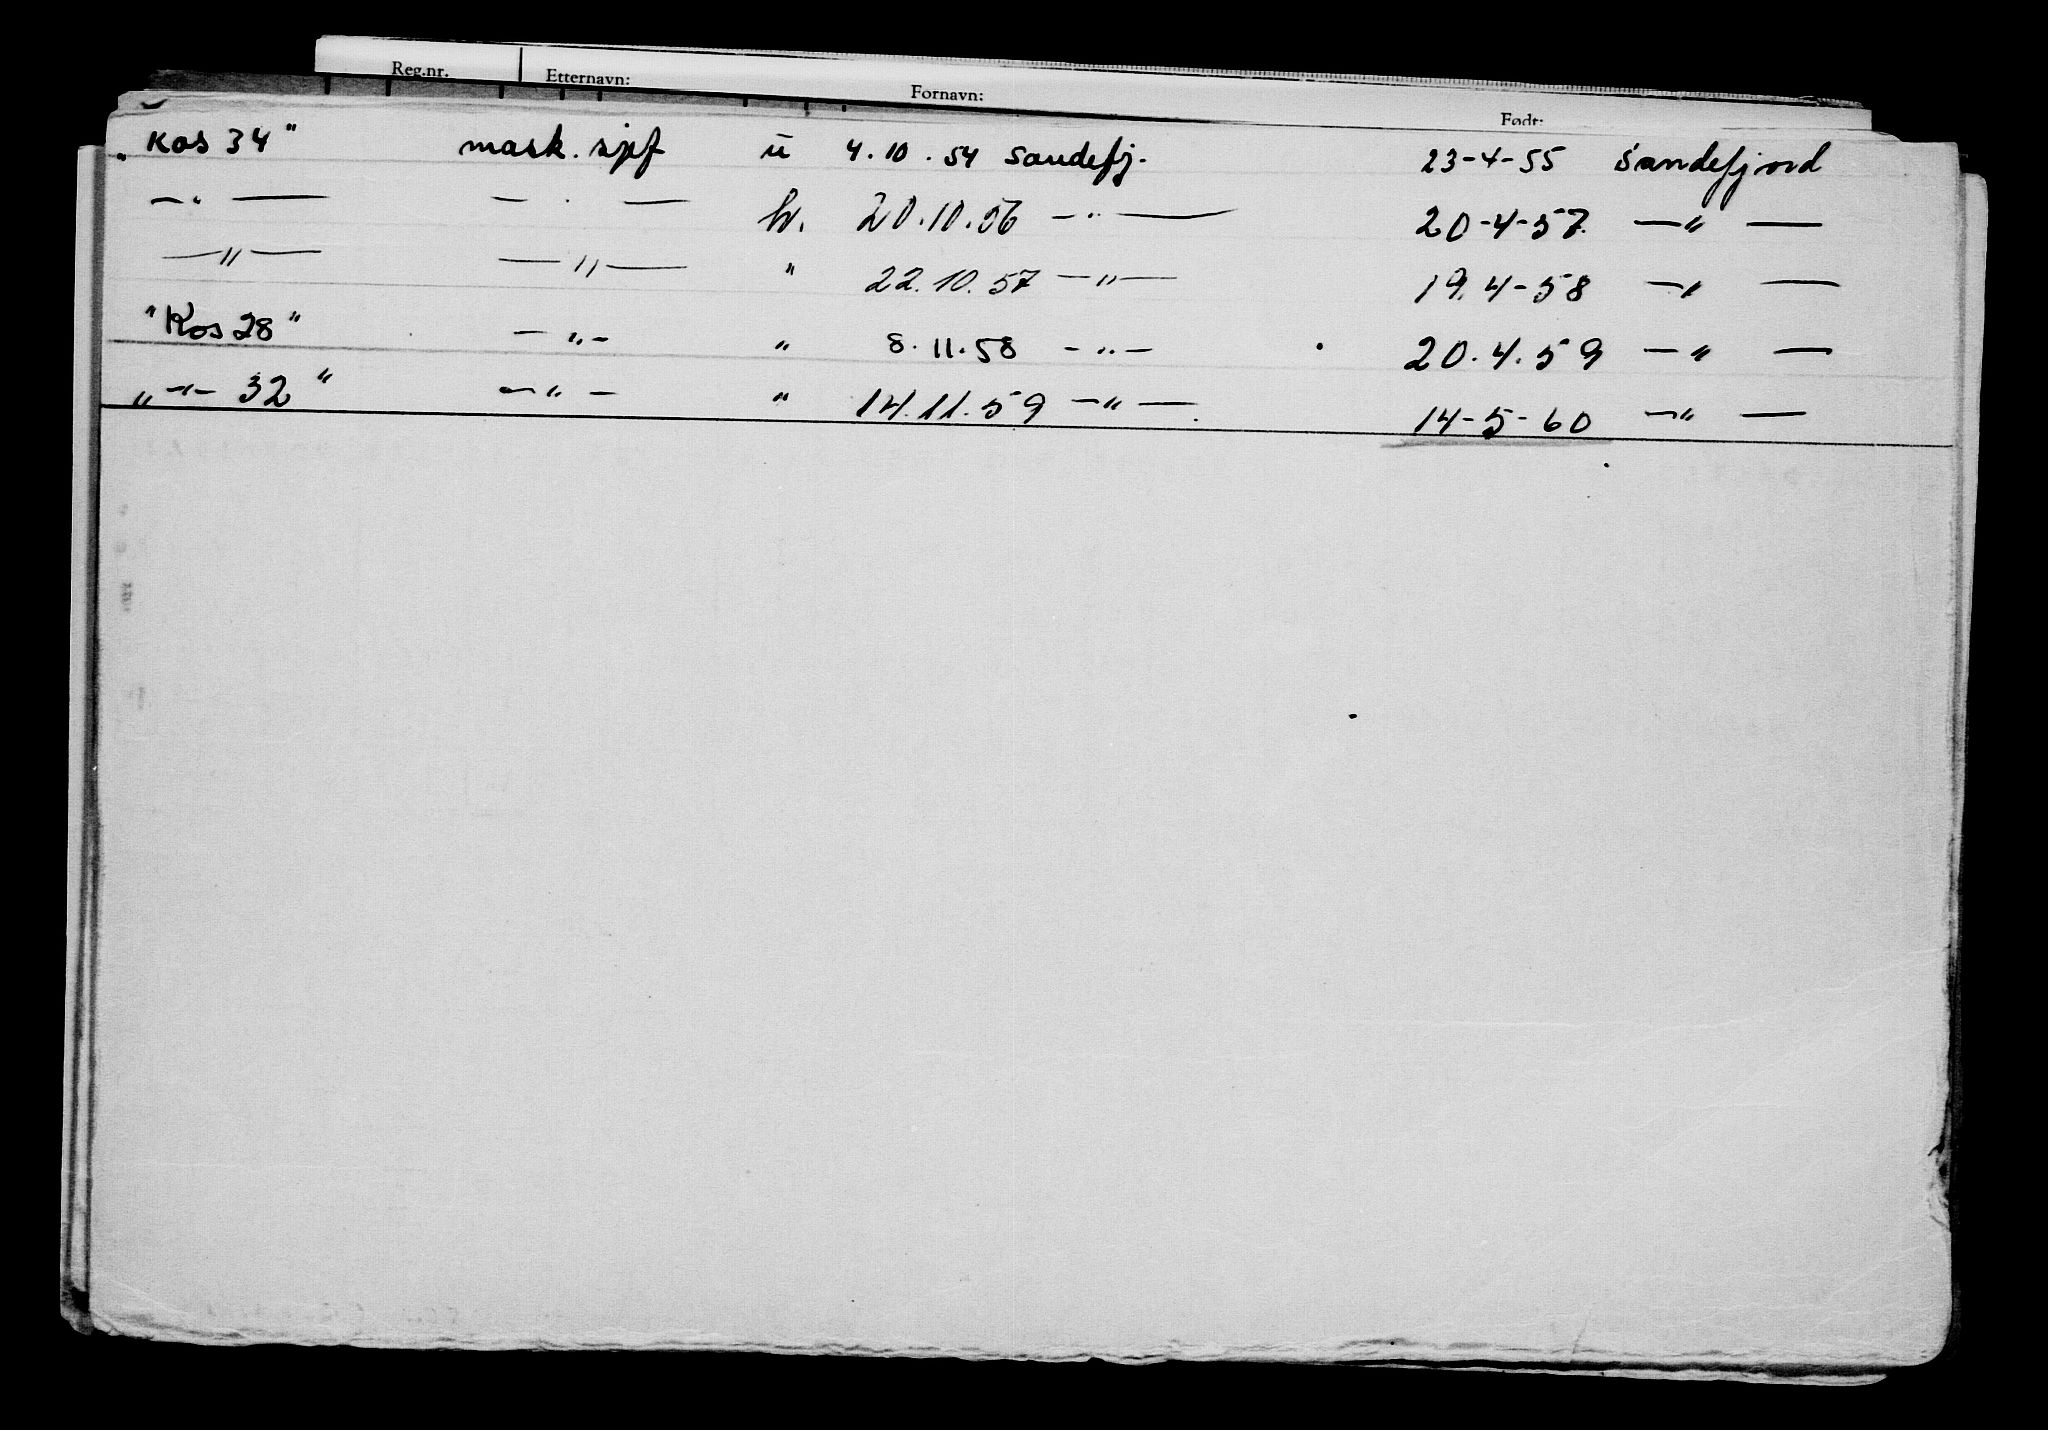 Reg.nr. Etternavn: Fornavn: Født:
„Kos 34" mask. sjef ü 4.10.54 Sandefj. 23-4-55 Sandefjord
— " — — " — hv. 20.10.56 — " — 20-4-57 — " —
— " — — " — " 22.10.57 — " — 19.4-58 — " —
"Kos 28" — " — " 8.11.58 — " — 20.4.59 — " —
„ — " — 32" — " — " 14.11.59 — " — 14-5-60 — " —